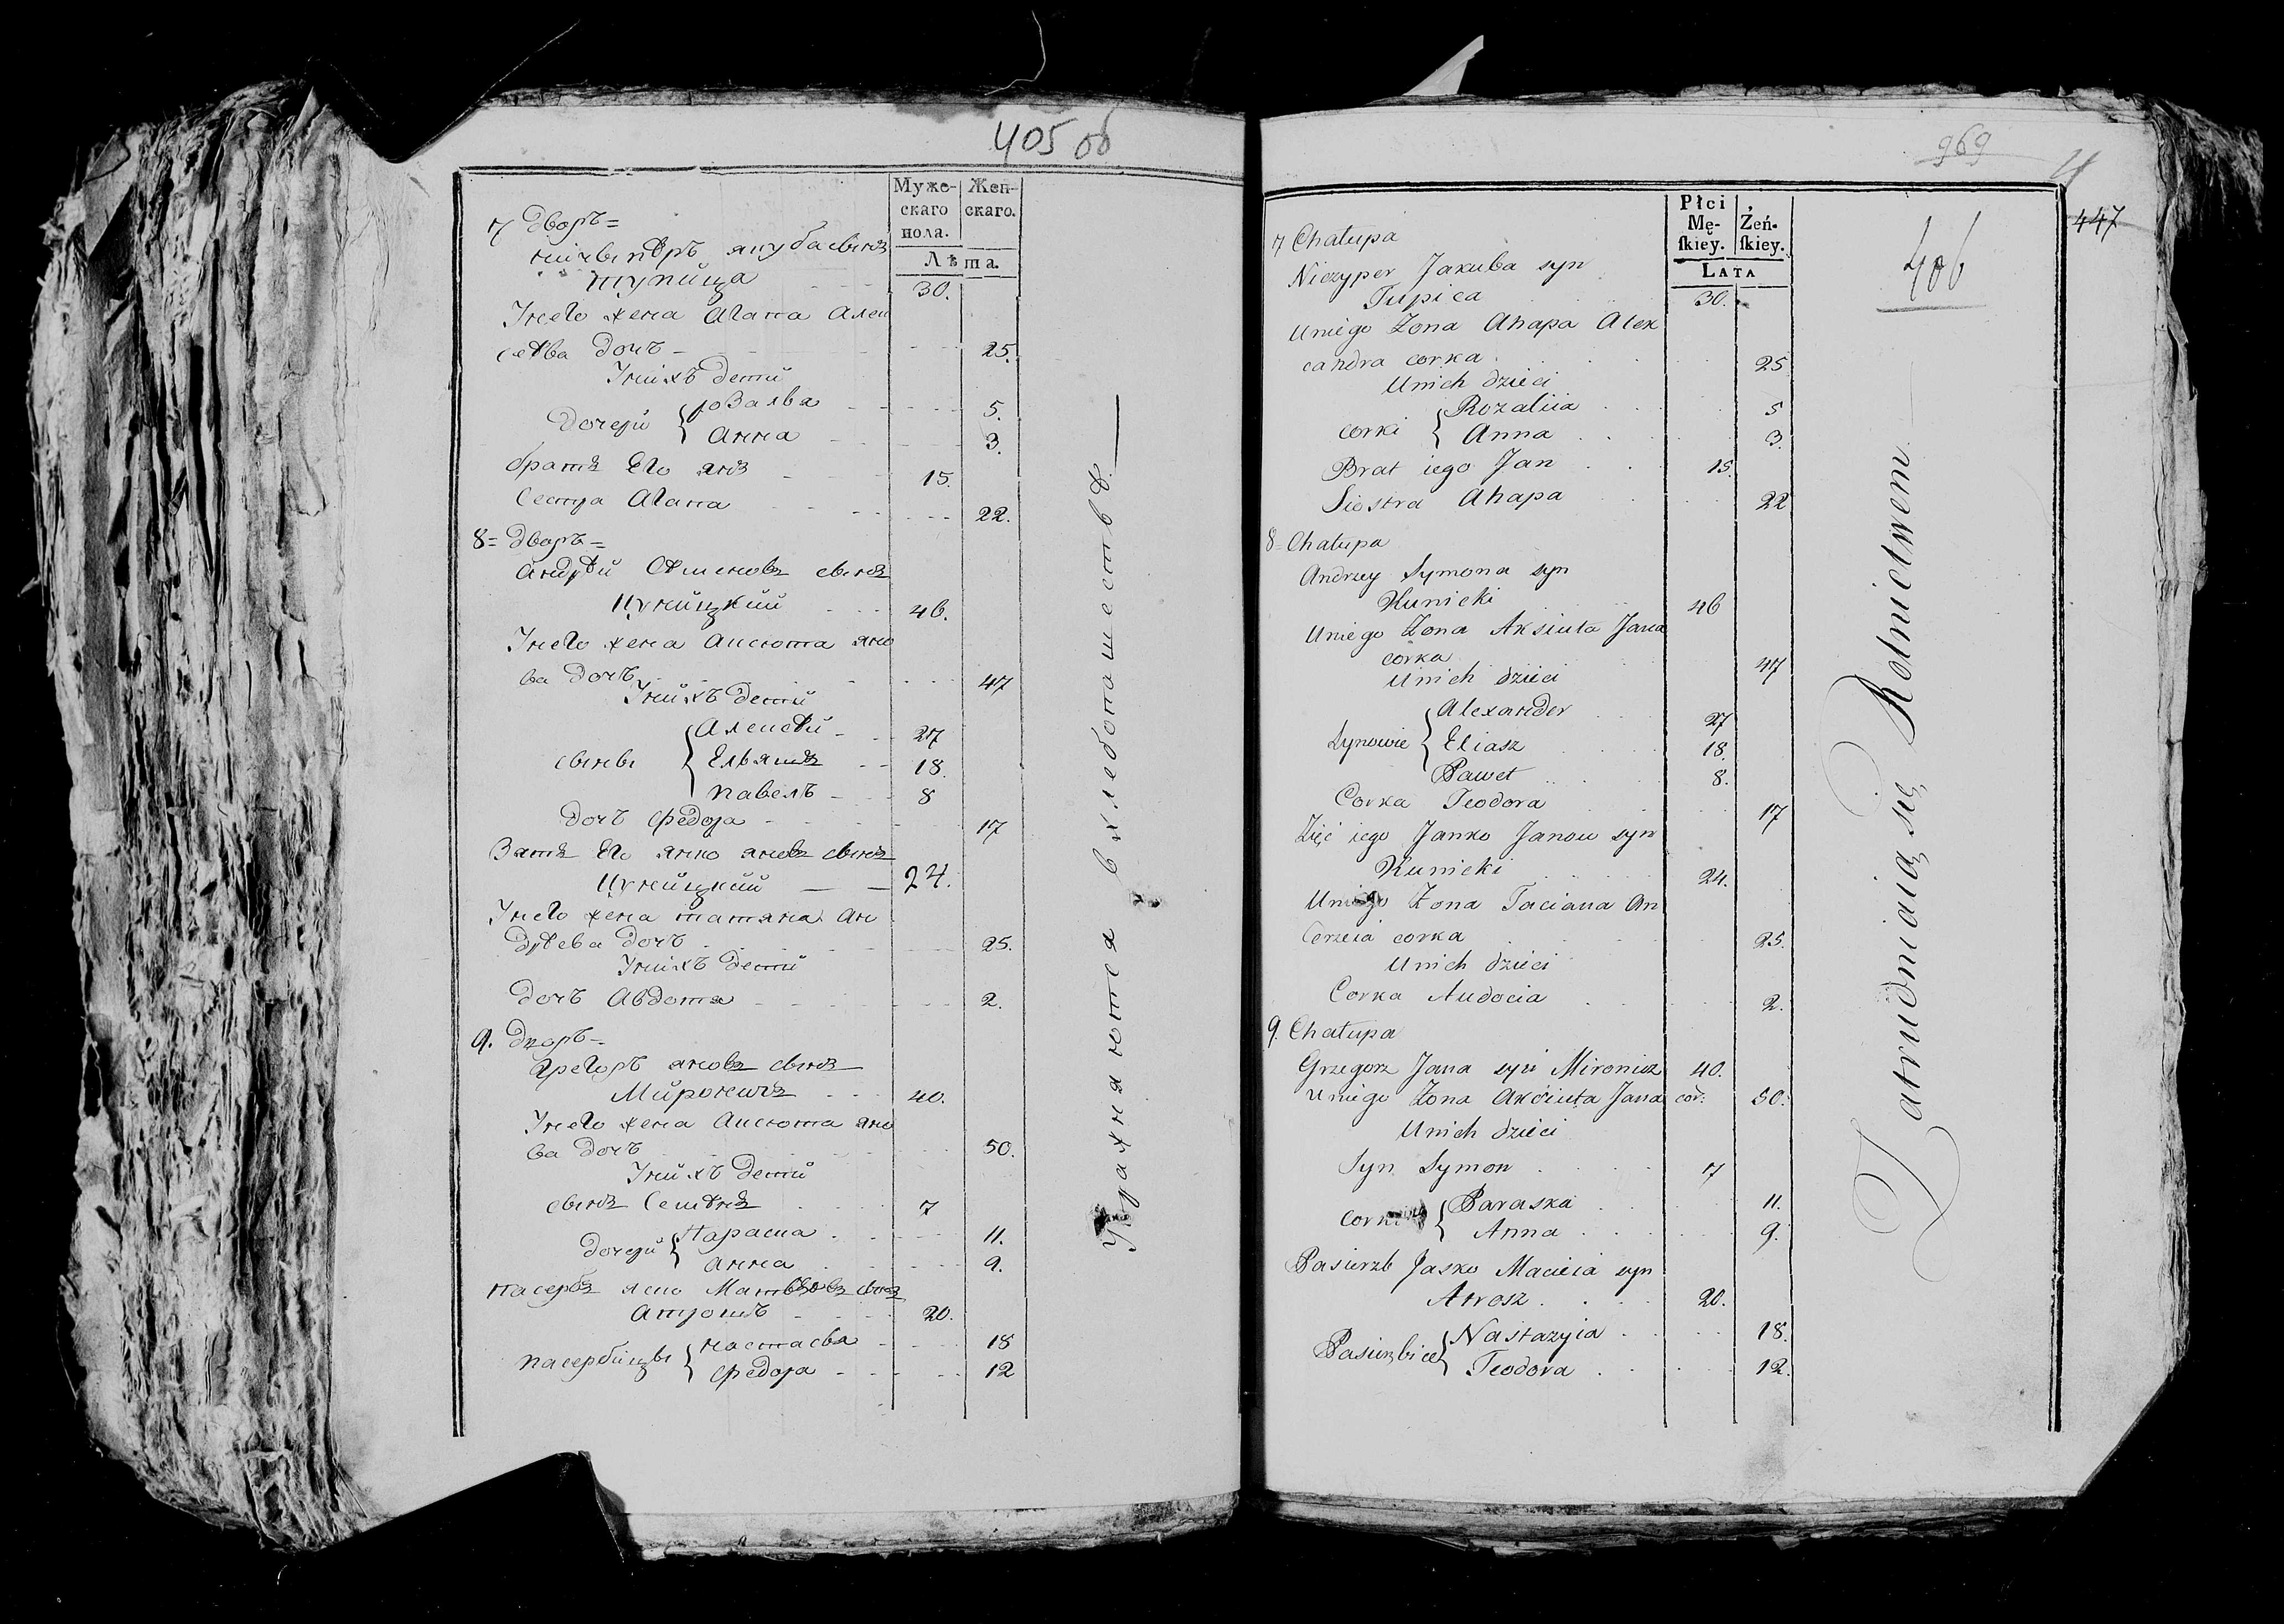 405 об
Муже-
скаго
пола.
Жен-
скаго.
Лѣта.
7 Дворъ=
ничыпѣръ якуба сынъ
тупица 30.
Унего жена Агапа Алек
сѣева дочъ 25.
Унихъ дети
дочери { розалья 5.
Анна 3.
братъ Его янъ 15.
Сестра Агапа 22.
8= Дворъ=
андрѣй Сѣменовъ сынъ
Цунйцкий 46.
Унего жена Аксюта яно
ва дочъ 47
Унихъ дети
сыны { Алексѣй 27
Ельяшъ 18.
павелъ 8
дочъ федора 17
Зять Его янко яновъ сынъ
Цунйцкий 24.
Унего жена татяна Ан
дрѣева дочъ 25.
Унихъ дети
дочъ Авдотя 2.
9. Дворъ=
Грегоръ яновъ сынъ
Миронечъ 40.
Унего жена Аксюта яно
ва дочъ 50.
Унихъ дети
сынъ Семѣнъ 7
дочери { Параска 11.
анна 9.
пасербъ яско сынъ
Атрошъ 20.
пасербицы { настасья 18
федора 12
Упражняются в хлебопашествѣ
969
447
406
Płci
Mę-
ſkiey.
Żeń-
ſkiey.
Lata
7 Chałupa
Niczyper Jakuba syn
Tupica 30.
Uniego Żona Ahapa Alex
candra corka 25
Unich dzieci
corki { Rozaliia 5
Anna 3.
Brat iego Jan 15.
Siostra Ahapa 22
8= Chałupa
Andrzey Symona syn
Kunicki 46
Uniego Żona Aksiuta Jana
corka 47
Unich dzieci
Synowie { Alexander 27
Eliasz 18.
Paweł 8.
Corka Teodora 17
Zięć iego Janko Janow syn
Kunicki 24.
Uniego Żona Taciana An
drzeia corka 25.
Unich dzieci
Corka Audocia 2.
9. Chałupa
Grzegorz Jana syn Mironicz 40.
Uniego Żona Akciuta Jana cor: 50.
Unich dzieci
Syn Symon 7
Corki { Paraska 11.
Anna 9.
Pasierzb Jasko Macieia syn
Atrosz 20.
Pasierzbice { Nastazyia 18.
Teodora 12.
Zatrudniaią się Rolnictwem